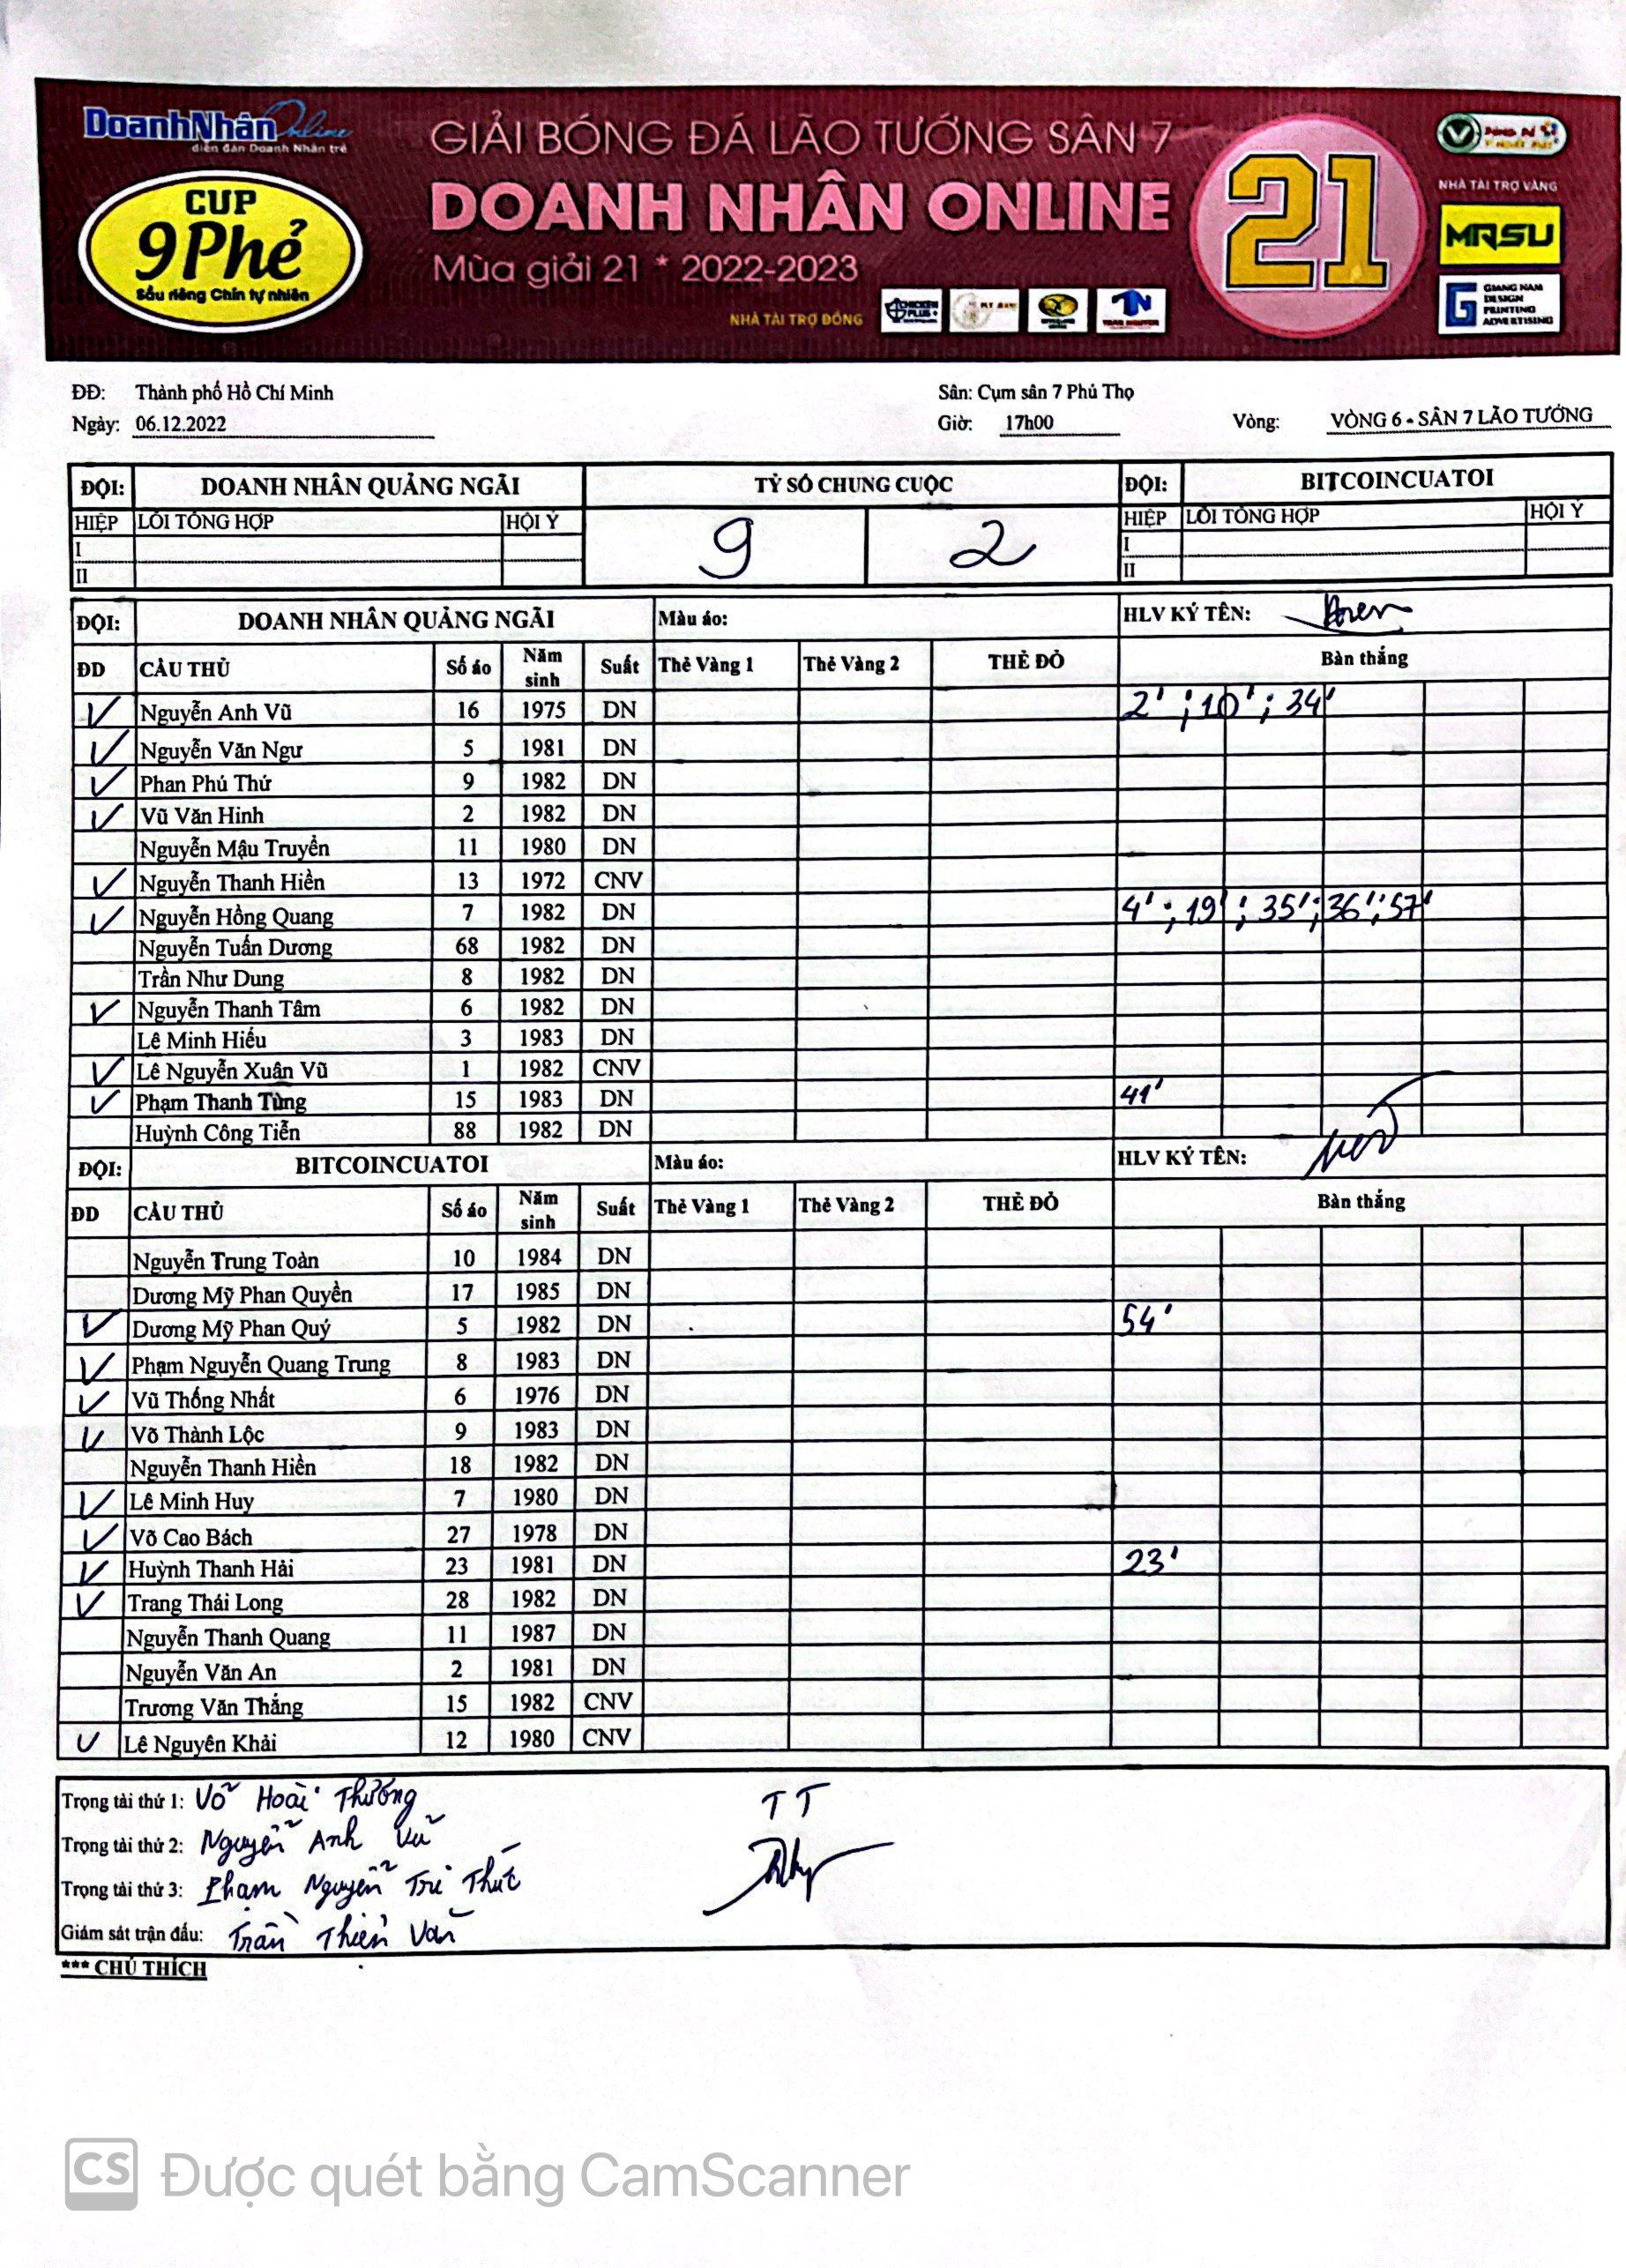 DoanhNhân Online
diễn đàn Doanh Nhân trẻ
CUP
9Phẻ
Sầu riêng Chín tự nhiên
GIẢI BÓNG ĐÁ LÃO TƯỚNG SÂN 7
DOANH NHÂN ONLINE
Mùa giải 21 * 2022-2023
NHÀ TÀI TRỢ ĐỒNG
21
NHÀ TÀI TRỢ VÀNG
MRSU
GIANG NAM
DESIGN
PRINTING
ADVERTISING
CHICKEN
PLUS
TN
ĐĐ: Thành phố Hồ Chí Minh Sân: Cụm sân 7 Phú Thọ
Ngày: 06.12.2022 Giờ: 17h00 Vòng: VÒNG 6 - SÂN 7 LÃO TƯỚNG
ĐỘI: DOANH NHÂN QUẢNG NGÃI TỶ SỐ CHUNG CUỘC ĐỘI: BITCOINCUATOI
HIỆP LỖI TỔNG HỢP HỘI Ý 9 2 HIỆP LỖI TỔNG HỢP HỘI Ý
I I
II II
ĐỘI: DOANH NHÂN QUẢNG NGÃI Màu áo: HLV KÝ TÊN:
ĐD CẦU THỦ Số áo Năm sinh Suất Thẻ Vàng 1 Thẻ Vàng 2 THẺ ĐỎ Bàn thắng
Nguyễn Anh Vũ 16 1975 DN 2' ; 10' ; 34'
Nguyễn Văn Ngư 5 1981 DN
Phan Phú Thứ 9 1982 DN
Vũ Văn Hinh 2 1982 DN
Nguyễn Mậu Truyền 11 1980 DN
Nguyễn Thanh Hiền 13 1972 CNV
Nguyễn Hồng Quang 7 1982 DN 4' ; 19' ; 35' ; 36' ; 57'
Nguyễn Tuấn Dương 68 1982 DN
Trần Như Dung 8 1982 DN
Nguyễn Thanh Tâm 6 1982 DN
Lê Minh Hiếu 3 1983 DN
Lê Nguyễn Xuân Vũ 1 1982 CNV
Phạm Thanh Tùng 15 1983 DN 41'
Huỳnh Công Tiễn 88 1982 DN
ĐỘI: BITCOINCUATOI Màu áo: HLV KÝ TÊN:
ĐD CẦU THỦ Số áo Năm sinh Suất Thẻ Vàng 1 Thẻ Vàng 2 THẺ ĐỎ Bàn thắng
Nguyễn Trung Toàn 10 1984 DN
Dương Mỹ Phan Quyền 17 1985 DN
Dương Mỹ Phan Quý 5 1982 DN 54'
Phạm Nguyễn Quang Trung 8 1983 DN
Vũ Thống Nhất 6 1976 DN
Võ Thành Lộc 9 1983 DN
Nguyễn Thanh Hiền 18 1982 DN
Lê Minh Huy 7 1980 DN
Võ Cao Bách 27 1978 DN
Huỳnh Thanh Hải 23 1981 DN 23'
Trang Thái Long 28 1982 DN
Nguyễn Thanh Quang 11 1987 DN
Nguyễn Văn An 2 1981 DN
Trương Văn Thắng 15 1982 CNV
Lê Nguyên Khải 12 1980 CNV
Trọng tài thứ 1: Võ Hoài Thương TT
Trọng tài thứ 2: Nguyễn Anh Vũ
Trọng tài thứ 3: Phạm Nguyễn Tri Thức
Giám sát trận đấu: Trần Thiện Văn
*** CHÚ THÍCH
CS Được quét bằng CamScanner